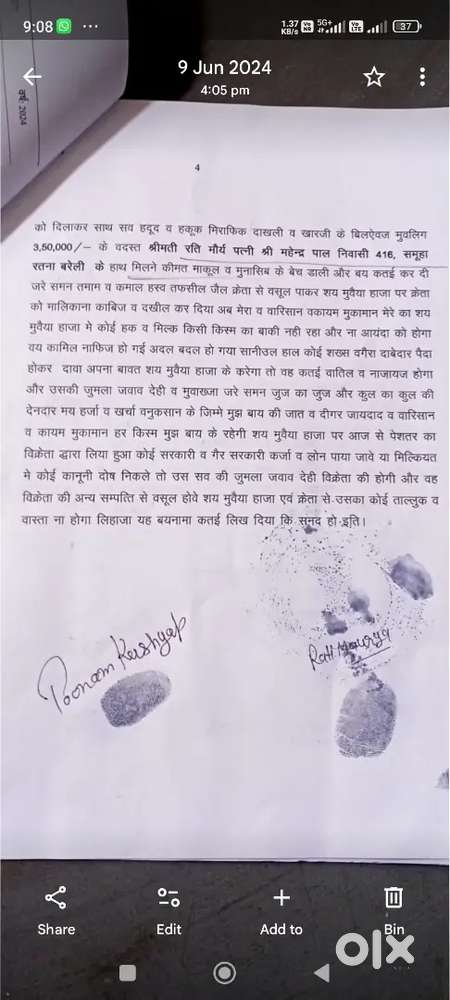 9:08
1.37 KB/s
5G+
37
9 Jun 2024
4:05 pm
वर्ष, 2024
4
को दिलाकर साथ सव हदूद व हकूक मिराफिक दाखली व खारजी के बिलऐवज मुवलिग
3,50,000/— के वदस्त श्रीमती रति मौर्य पत्नी श्री महेन्द्र पाल निवासी 416, समूहा
रतना बरेली के हाथ मिलने कीमत माकूल व मुनासिब के बेच डाली और बय कतई कर दी
जरे समन तमाम व कमाल हस्व तफसील जैल क्रेता से वसूल पाकर शय मुवैया हाजा पर क्रेता
को मालिकाना काबिज व दखील कर दिया अब मेरा व वारिसान वकायम मुकामान मेरे का शय
मुवैया हाजा मे कोई हक व मिल्क किसी किस्म का बाकी नही रहा और ना आयंदा को होगा
वय कामिल नाफिज हो गई अदल बदल हो गया सानीउल हाल कोई शख्स वगैरा दाबेदार पैदा
होकर दावा अपना बावत शय मुवैया हाजा के करेगा तो वह कतई वातिल व नाजायज होगा
और उसकी जुमला जवाव देही व मुवाख्जा जरे समन जुज का जुज और कुल का कुल की
देनदार मय हर्जा व खर्चा वनुकसान के जिम्मे मुझ बाय की जात व दीगर जायदाद व वारिसान
व कायम मुकामान हर किस्म मुझ बाय के रहेगी शय मुवैया हाजा पर आज से पेशतर का
विक्रेता द्धारा लिया हुआ कोई सरकारी व गैर सरकारी कर्जा व लोन पाया जावे या मिल्कियत
मे कोई कानूनी दोष निकले तो उस सव की जुमला जवाव देही विक्रेता की होगी और वह
विक्रेता की अन्य सम्पत्ति से वसूल होवे शय मुवैया हाजा एवं क्रेता से उसका कोई ताल्लुक व
वास्ता ना होगा लिहाजा यह बयनामा कतई लिख दिया कि सनद हो इति।
Poonam Kashyap
Rati Mourya
Share
Edit
Add to
Bin
olx